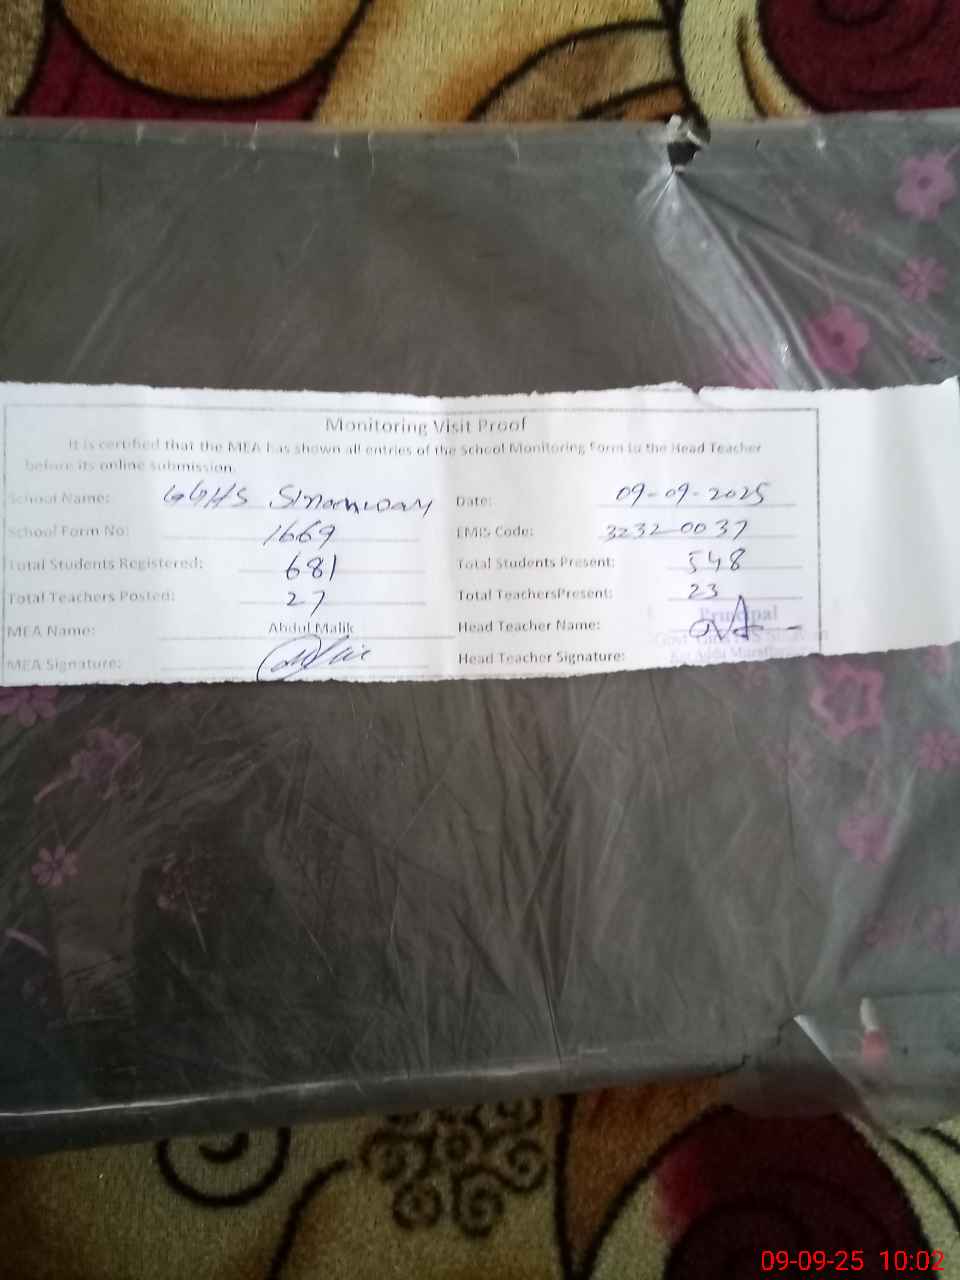 Monitoring Visit Proof
It is certified that the MEA has shown all entries of the School Monitoring Form to the Head Teacher
before its online submission.
School Name: GGHS Date: 09-09-2025
School Form No: 1669 EMIS Code: 3232-0037
Total Students Registered: 681 Total Students Present: 548
Total Teachers Posted: 27 Total TeachersPresent: 23
Principal
MEA Name: Abdul Malik Head Teacher Name:
MEA Signature: Head Teacher Signature:
09-09-25 10:02